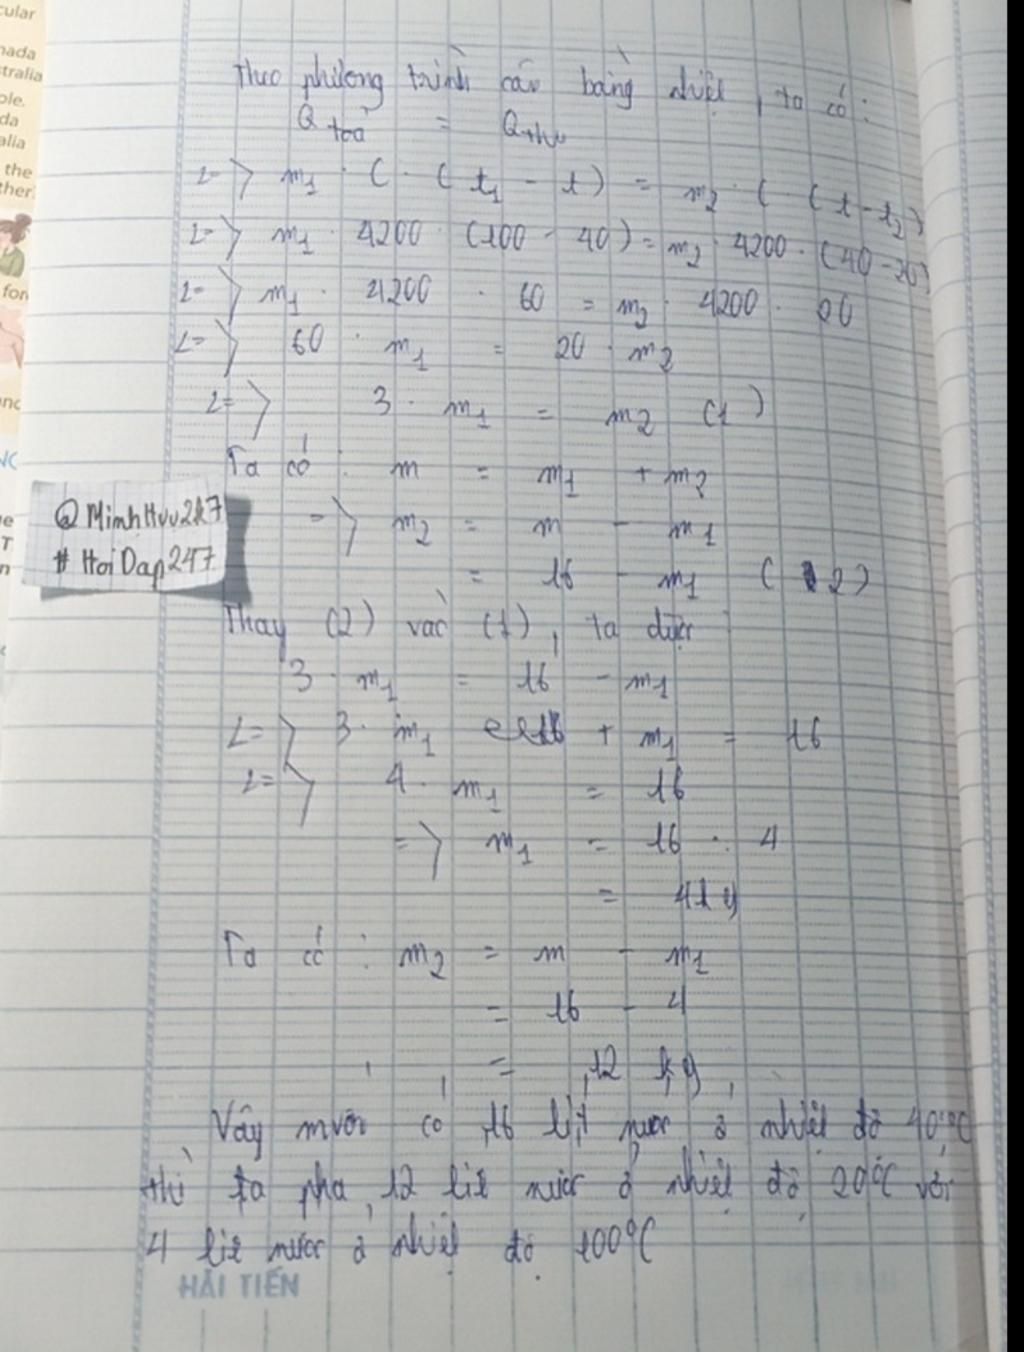 cular
nada
stralia
ple.
da
alia
the
ther.
for
und
Theo phương trình cân bằng nhiệt, ta có:
Q tỏa = Q thu
<=> m1 . C . (t1 - t) = m2 . C . (t - t2)
<=> m1 . 4200 . (100 - 40) = m2 . 4200 . (40 - 20)
<=> m1 . 4200 . 60 = m2 . 4200 . 20
<=> 60 . m1 = 20 . m2
<=> 3 . m1 = m2 (1)
Ta có : m = m1 + m2
=> m2 = m - m1
= 16 - m1 (2)
@MinhHuu2k7
#HoiDap247
Thay (2) vào (1), ta được
3 . m1 = 16 - m1
<=> 3 . m1 + m1 = 16
<=> 4 . m1 = 16
=> m1 = 16 : 4
= 4kg
Ta có : m2 = m - m1
= 16 - 4
= 12 kg
Vậy muốn có 16 lít nước ở nhiệt độ 40°C
thì ta pha 12 lít nước ở nhiệt độ 20°C với
4 lít nước ở nhiệt độ 100°C
HẢI TIẾN